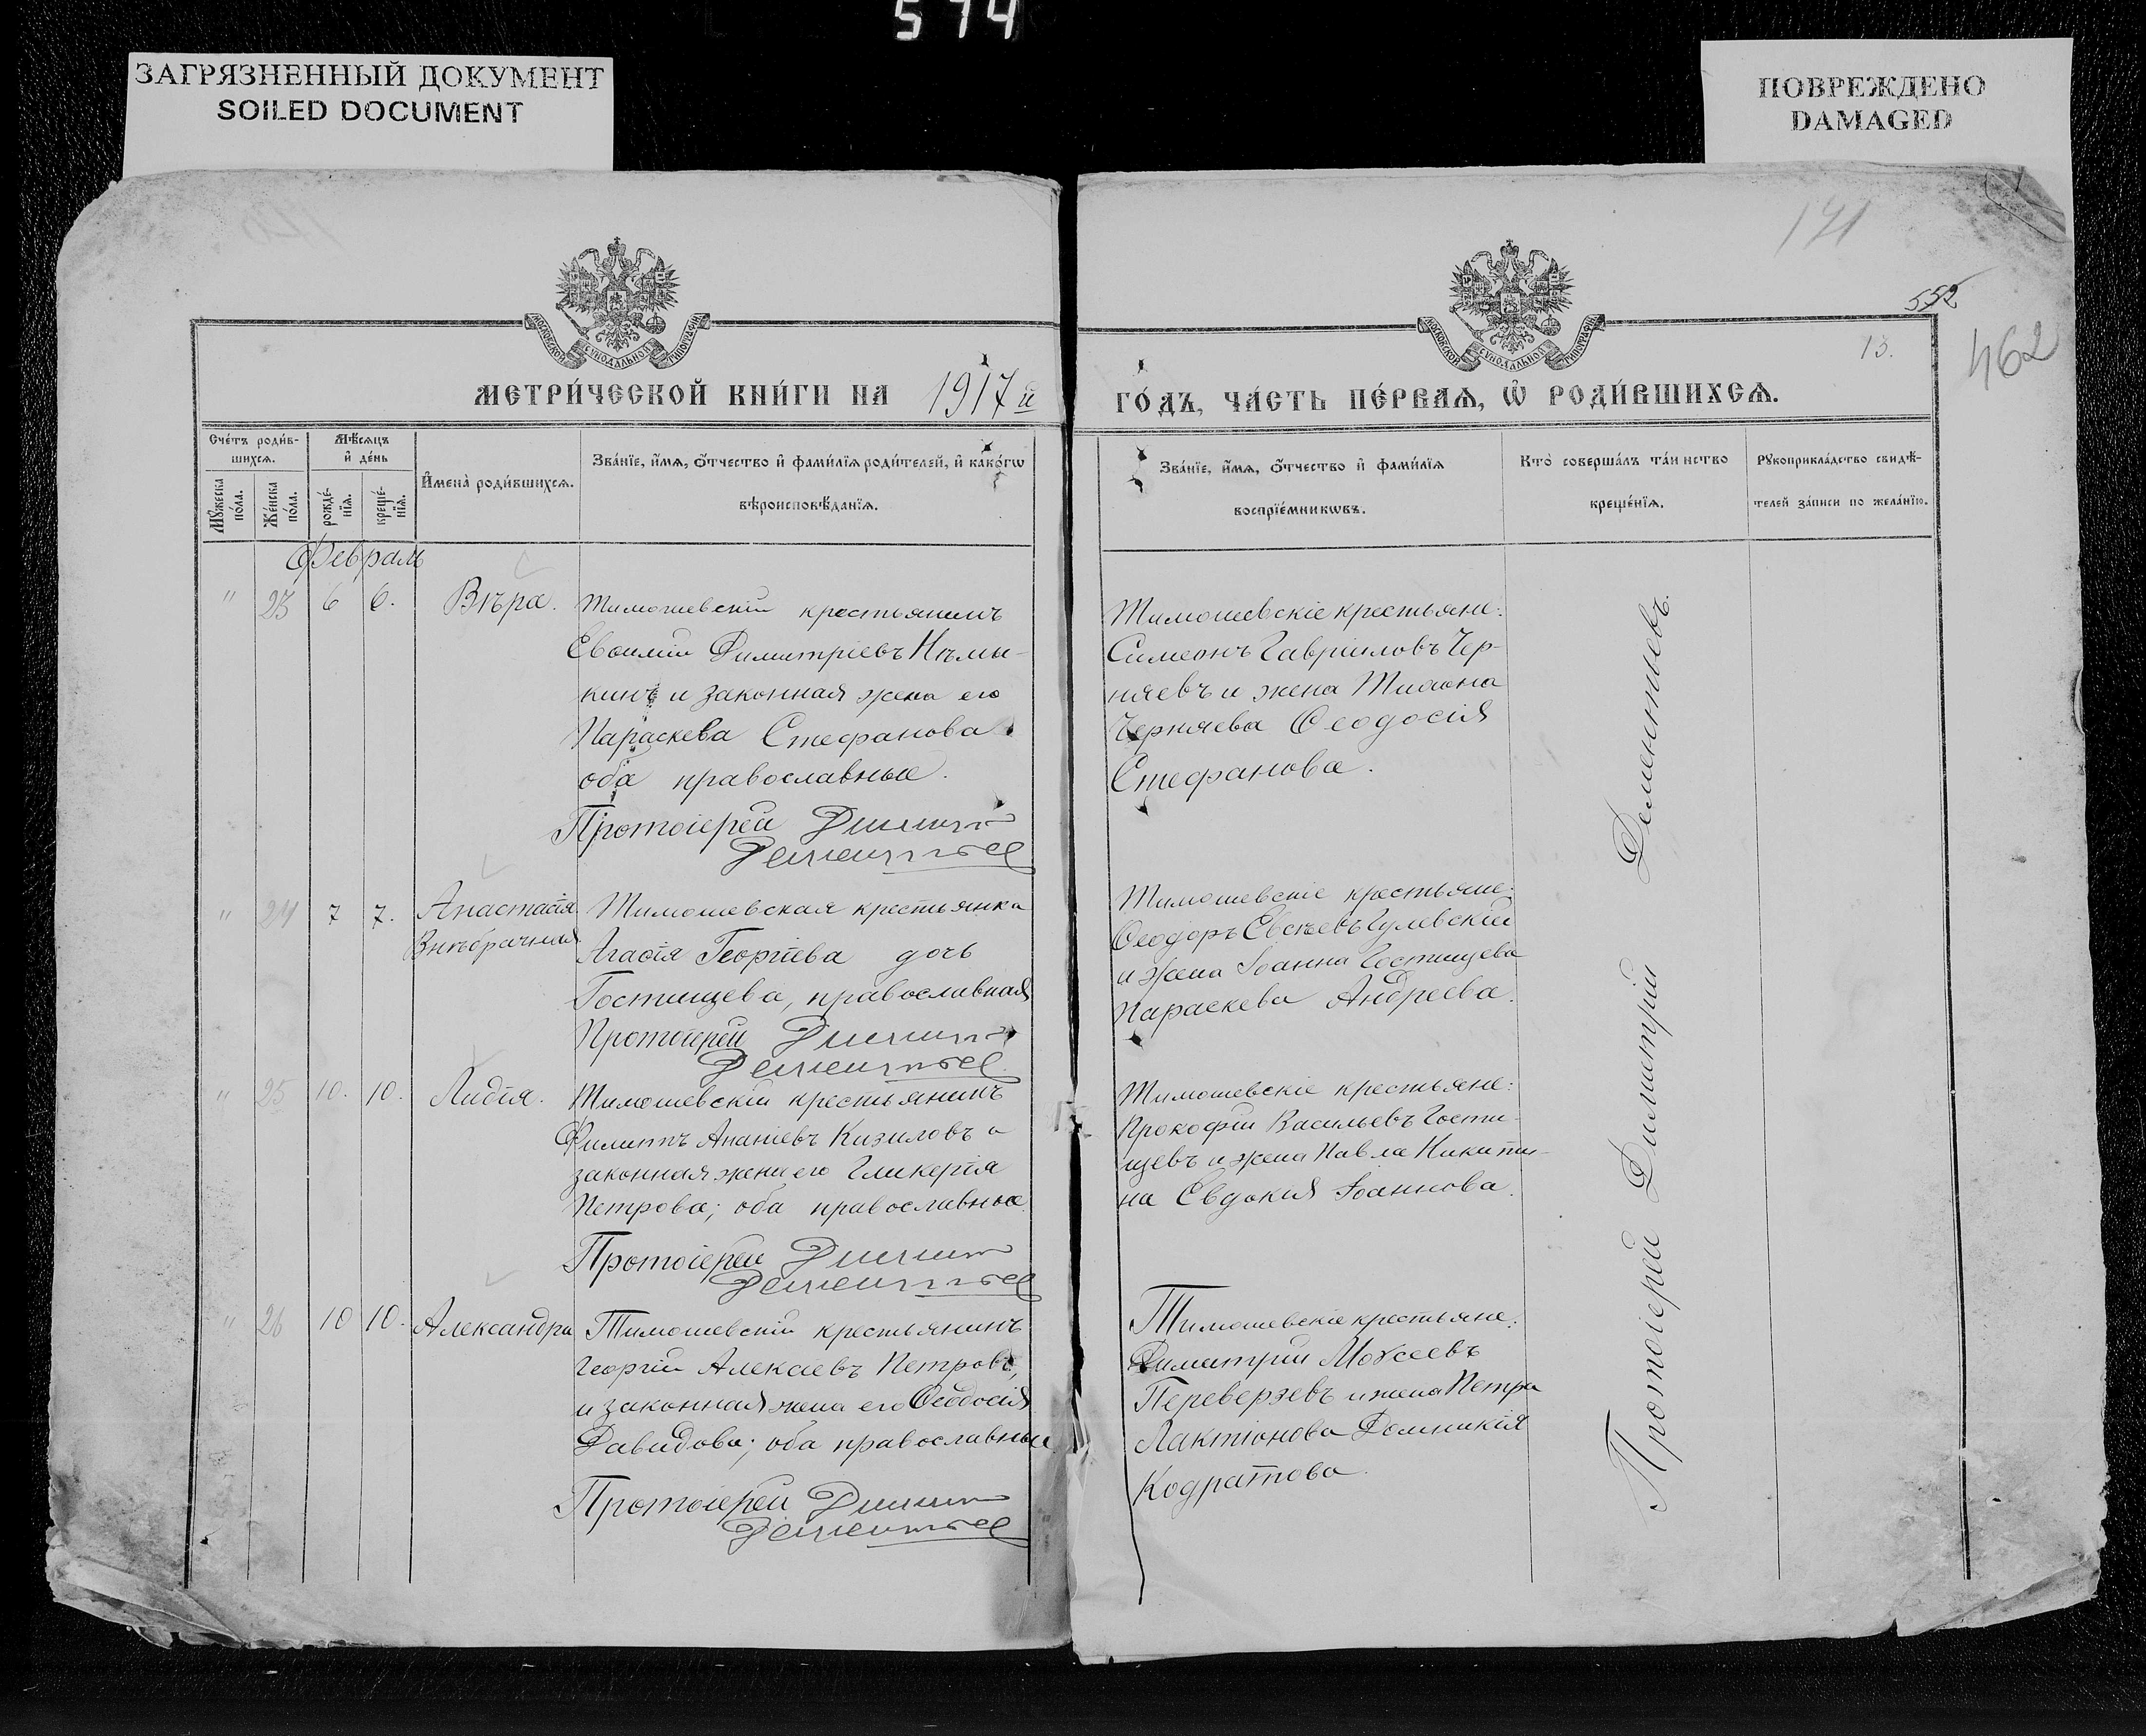 574
ЗАГРЯЗНЕННЫЙ ДОКУМЕНТ
SOILED DOCUMENT
ПОВРЕЖДЕНО
DAMAGED
171
552
462
13.
МОСКОВСКОЙ СѴНОДАЛЬНОЙ ТИПОГРАФІИ
МОСКОВСКОЙ СѴНОДАЛЬНОЙ ТИПОГРАФІИ
МЕТРИ́ЧЕСКОЙ КНИ́ГИ НА 1917й
ГО́ДЪ, ЧА́СТЬ ПЕ́РВАѦ, Ѿ РОДИ́ВШИХСѦ.
Сче́тъ роди́в-
шихсѧ.
Мꙋ́жеска по́ла.
Же́нска по́ла.
Мѣ́сѧцъ
и҆ де́нь
рожде́-
нїѧ.
креще́-
нїѧ.
И҆мена̀ роди́вшихсѧ.
Зва́нїе, и҆́мѧ, ѻ҆́тчество и҆ фами́лїѧ роди́телей, и҆ како́гѡ
вѣроисповѣ́данїѧ.
Зва́нїе, и҆́мѧ, ѻ҆́тчество и҆ фами́лїѧ
воспрїе́мникѡвъ.
Кто̀ соверша́лъ та́инство
креще́нїѧ.
Рꙋкоприкла́дство свидѣ́-
телей за́писи по жела́нїю.
Февраль
" 23 6 6. Вѣра. Тимошевскій крестьянинъ
Евѳимій Димитріевъ Нѣмы-
кинъ и законная жена его
Параскева Стефанова
оба православные.
Протоіерей Димит
Дементьев
Тимошевскіе крестьяне:
Симеонъ Гавріиловъ Чер-
няевъ и жена
Черняева Ѳеодосія
Стефанова.
" 24 7 7. Анастасія Тимошевская крестьянка
Внѣбрачная Агаѳія Георгіева дочь
Гостищева, православная
Протоіерей Димит
Дементьев
Тимошевскіе крестьяне:
Ѳеодоръ Евсѣевъ Гулевскій
и жена Іоанна Гостищева
Параскева Андреева.
" 25 10. 10. Лидія. Тимошевскій крестьянинъ
Филиппъ Ананіевъ Кизиловъ и
законная жена его Гликерія
Петрова; оба православные.
Протоіерей Димит
Дементьев
Тимошевскіе крестьяне:
Прокофій Васильевъ Гости-
щевъ и жена Павла Никити-
на Евдокія Іоаннова.
" 26 10 10. Александра Тимошевскій крестьянинъ
Георгій Алексѣевъ Петровъ,
и законная жена его Ѳеодосія
Давидова; оба православные
Протоіерей Димит
Дементьев
Тимошевскіе крестьяне:
Димитрій Моѵсеевъ
Переверзевъ и жена Петра
Лактіонова Домникія
Кодратова.
Протоіерей Димитрій Дементьевъ.